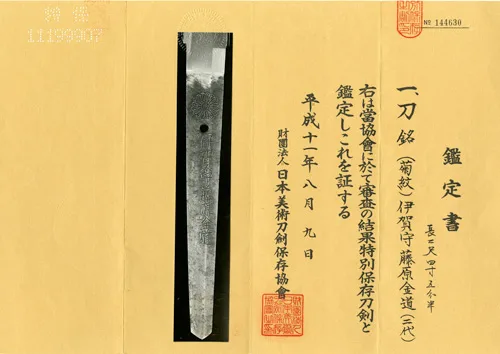 特保
11199907
№ 144630
鑑定書
長二尺四寸五分半
一、刀 銘(菊紋)伊賀守藤原金道(二代)
右は當協會に於て審査の結果特別保存刀剣と
鑑定しこれを証する
平成十一年八月九日
財團法人日本美術刀剣保存協會